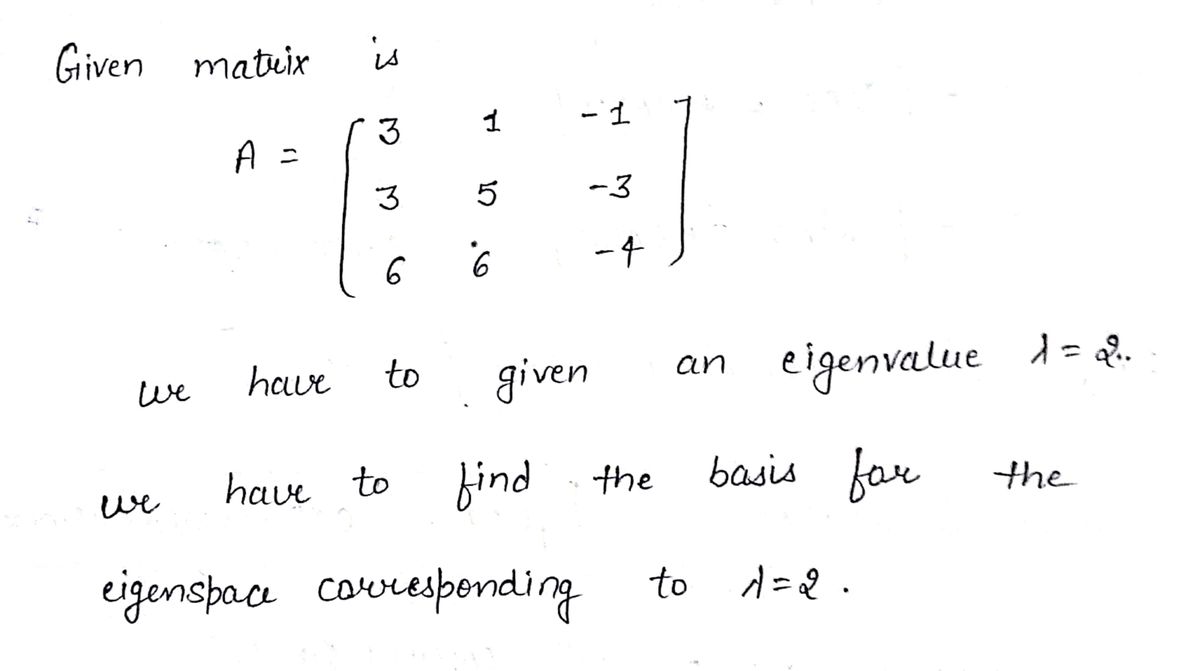 Given matrix is
A = [ 3 1 -1
3 5 -3
6 6 -4 ]
we have to given an eigenvalue λ = 2.
we have to find the basis for the
eigenspace corresponding to λ=2.